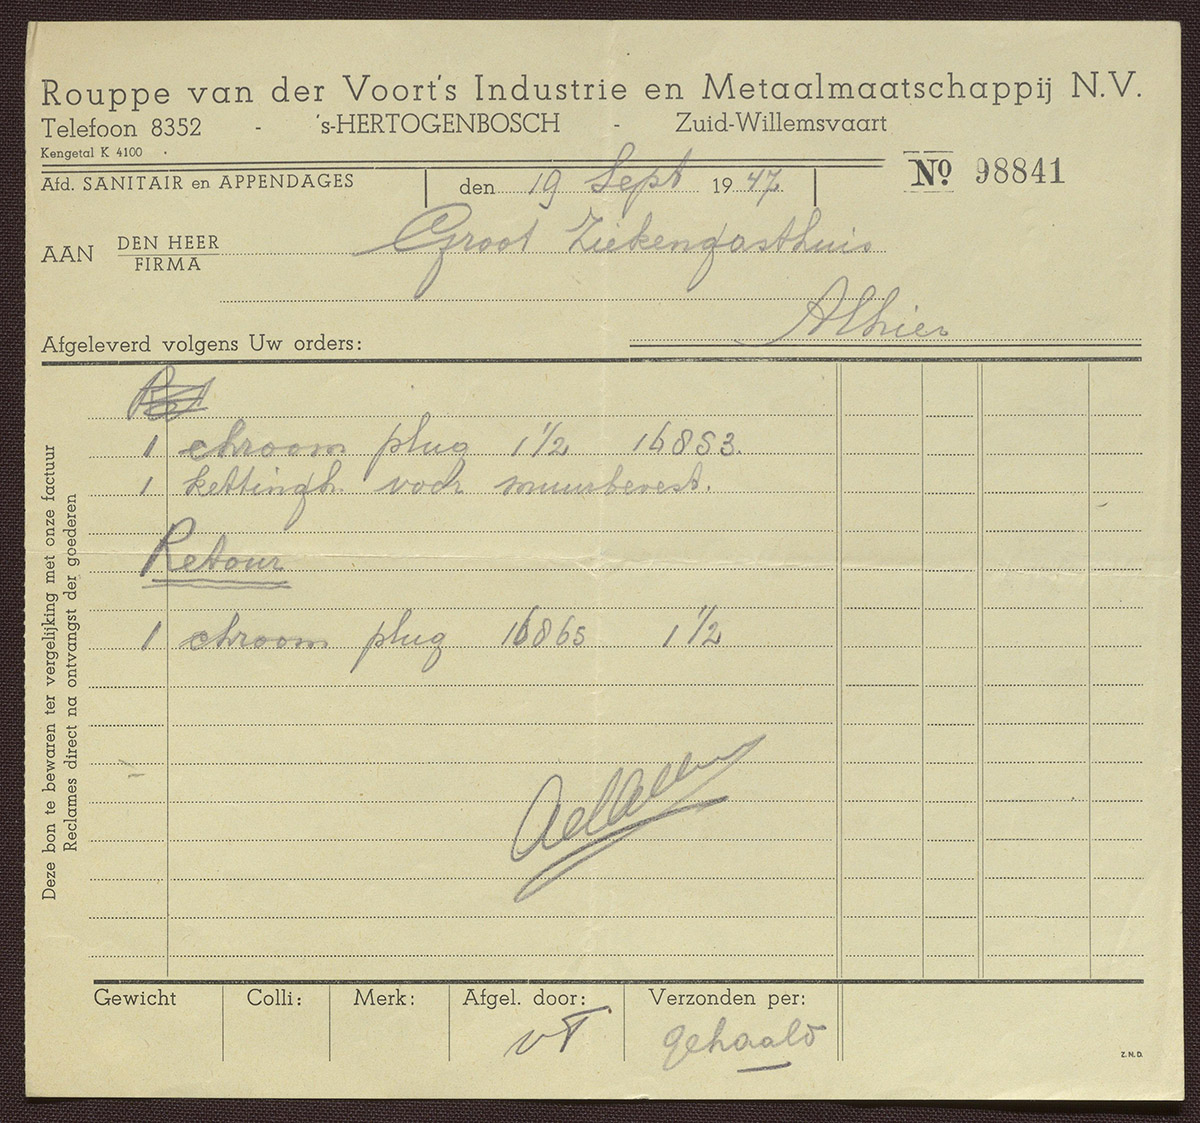 Rouppe van der Voort's Industrie en Metaalmaatschappij N.V.
Telefoon 8352 - 's-HERTOGENBOSCH - Zuid-Willemsvaart
Kengetal K 4100
Afd. SANITAIR en APPENDAGES den 19 Sept 1947. Nº 98841
AAN DEN HEER
FIRMA
Groot Ziekengasthuis
Alhier
Afgeleverd volgens Uw orders:
1 chroom plug 1 1/2 16853.
1 kettingh. voor muurbevest.
Retour
1 chroom plug 16865 1 1/2
Deze bon te bewaren ter vergelijking met onze factuur
Reclames direct na ontvangst der goederen
Gewicht Colli: Merk: Afgel. door: Verzonden per:
vT gehaald
Z.N.D.